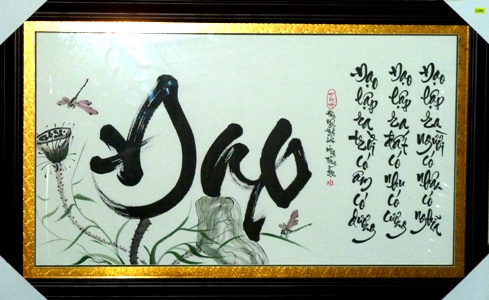 Đạo
Đạo lập ra trời có âm có dương
Đạo lập ra đất có nhu có cương
Đạo lập ra người có nhân có nghĩa